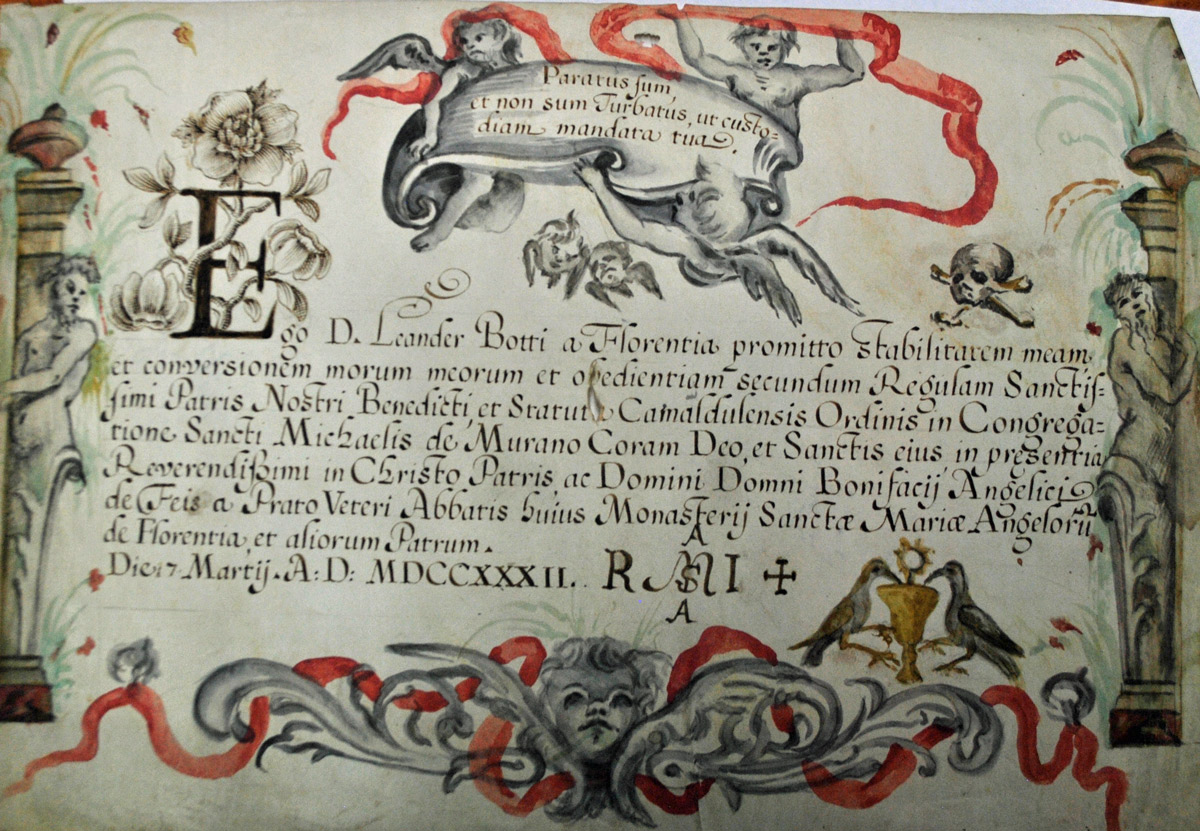 Paratus sum,
et non sum Turbatus, ut custo=
diam mandata tua.
Ego D. Leander Botti a Florentia promitto stabilitatem meam,
et conversionem morum meorum et obedientiam secundum Regulam Sanctis=
simi Patris Nostri Benedicti, et Statuta Camaldulensis Ordinis in Congrega=
tione Sancti Michaelis de Murano Coram Deo, et Sanctis eius in presentia
Reverendißimi in Christo Patris ac Domini Domni Bonifacij Angelici
de Feis a Prato Veteri Abbatis huius Monasterij Sanctæ Mariæ Angelorũ
de Florentia, et aliorum Patrum.
Die 17 Martij. A: D: MDCCXXXII.